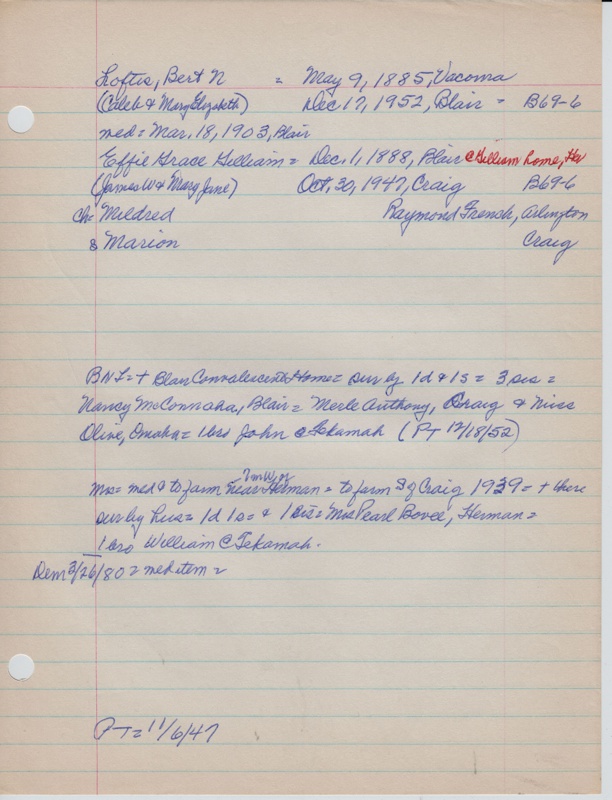 Loftis, Bert N = May 9, 1885, Vacoma
(Caleb & Mary Elizabeth) Dec 17, 1952, Blair = B69-6
med = Mar. 18, 1903, Blair
Effie Grace Gilliam = Dec. 1, 1888, Blair @ Gilliam home, Her
(James W & Mary Jane) Oct. 30, 1947, Craig B69-6
Ch: Mildred Raymond French, Arlington
& Marion Craig
BNL = + Blair Convalescent Home = sur by 1d & 1s = 3 sis =
Nancy McConnaha, Blair = Merle Anthony, Craig & Miss
Olive, Omaha = 1 bro John @ Tekamah (PT 12/18/52)
7 mi W of
Mrs = med & to farm near Herman = to farm S of Craig 1939 = + there
sur by hus = 1d 1s = & 1 sis = Mrs Pearl Bovee, Herman =
1 bro William @ Tekamah.
Dem 3/26/80 = med item =
PT = 11/6/47